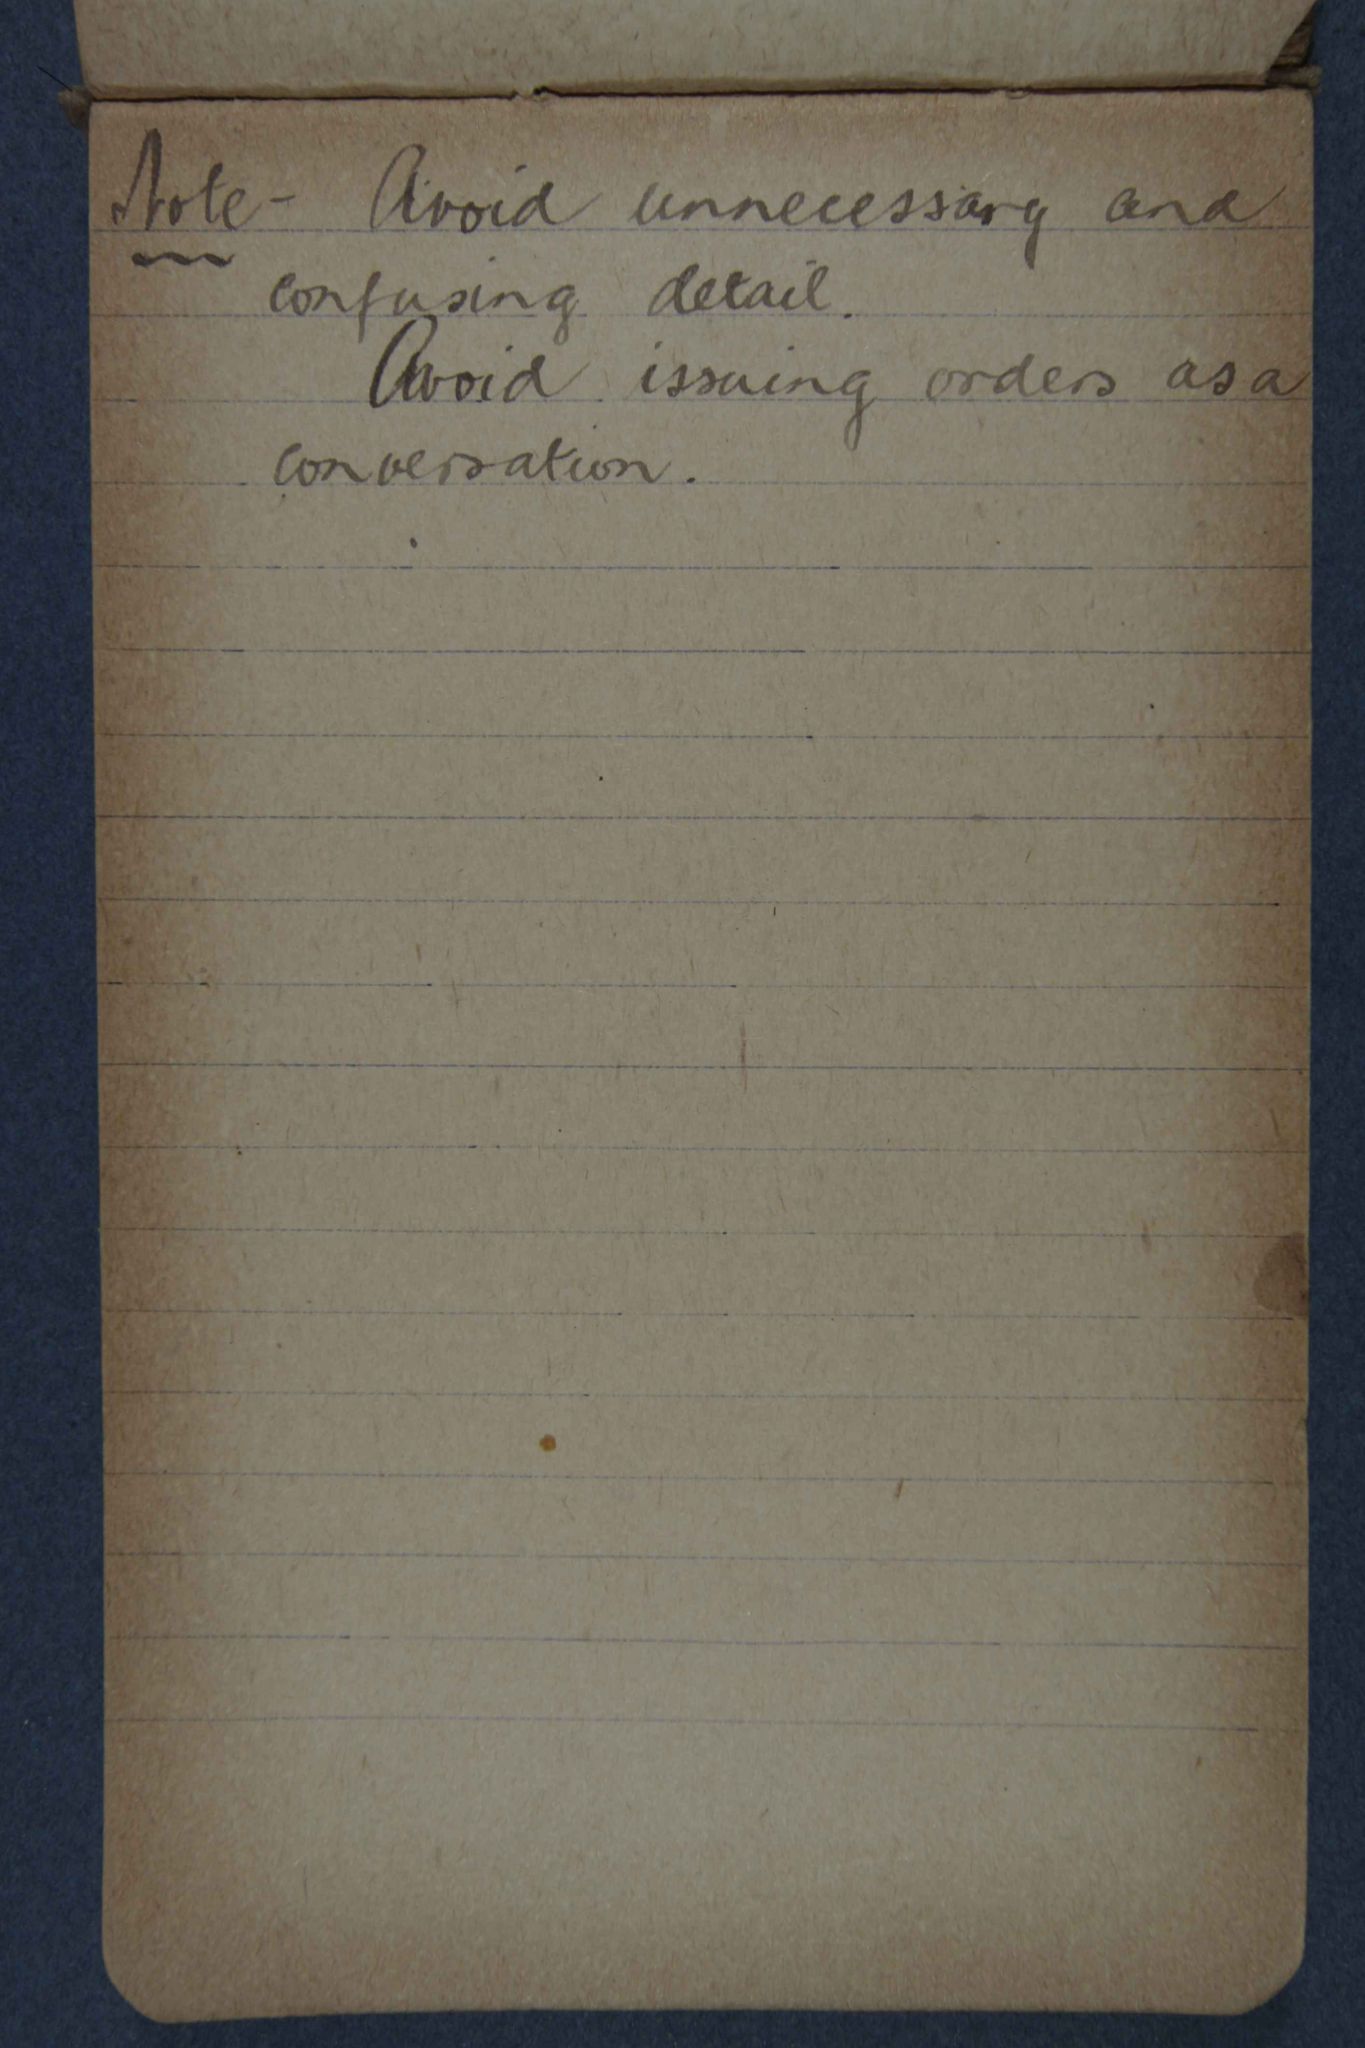 Note - Avoid unnecessary and
confusing detail.
Avoid issuing orders as a
conversation.